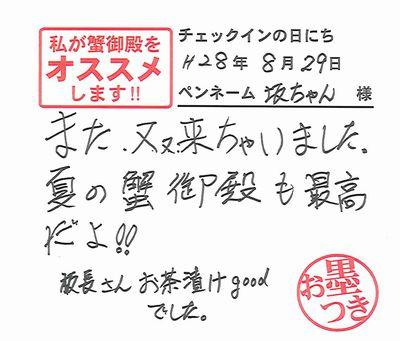 私が蟹御殿を
オススメ
します!!
チェックインの日にち
H28年 8月 29日
ペンネーム 坂ちゃん 様
また、又又来ちゃいました。
夏の蟹御殿も最高
だよ!!
板長さん お茶漬け good
でした。
お墨
つき